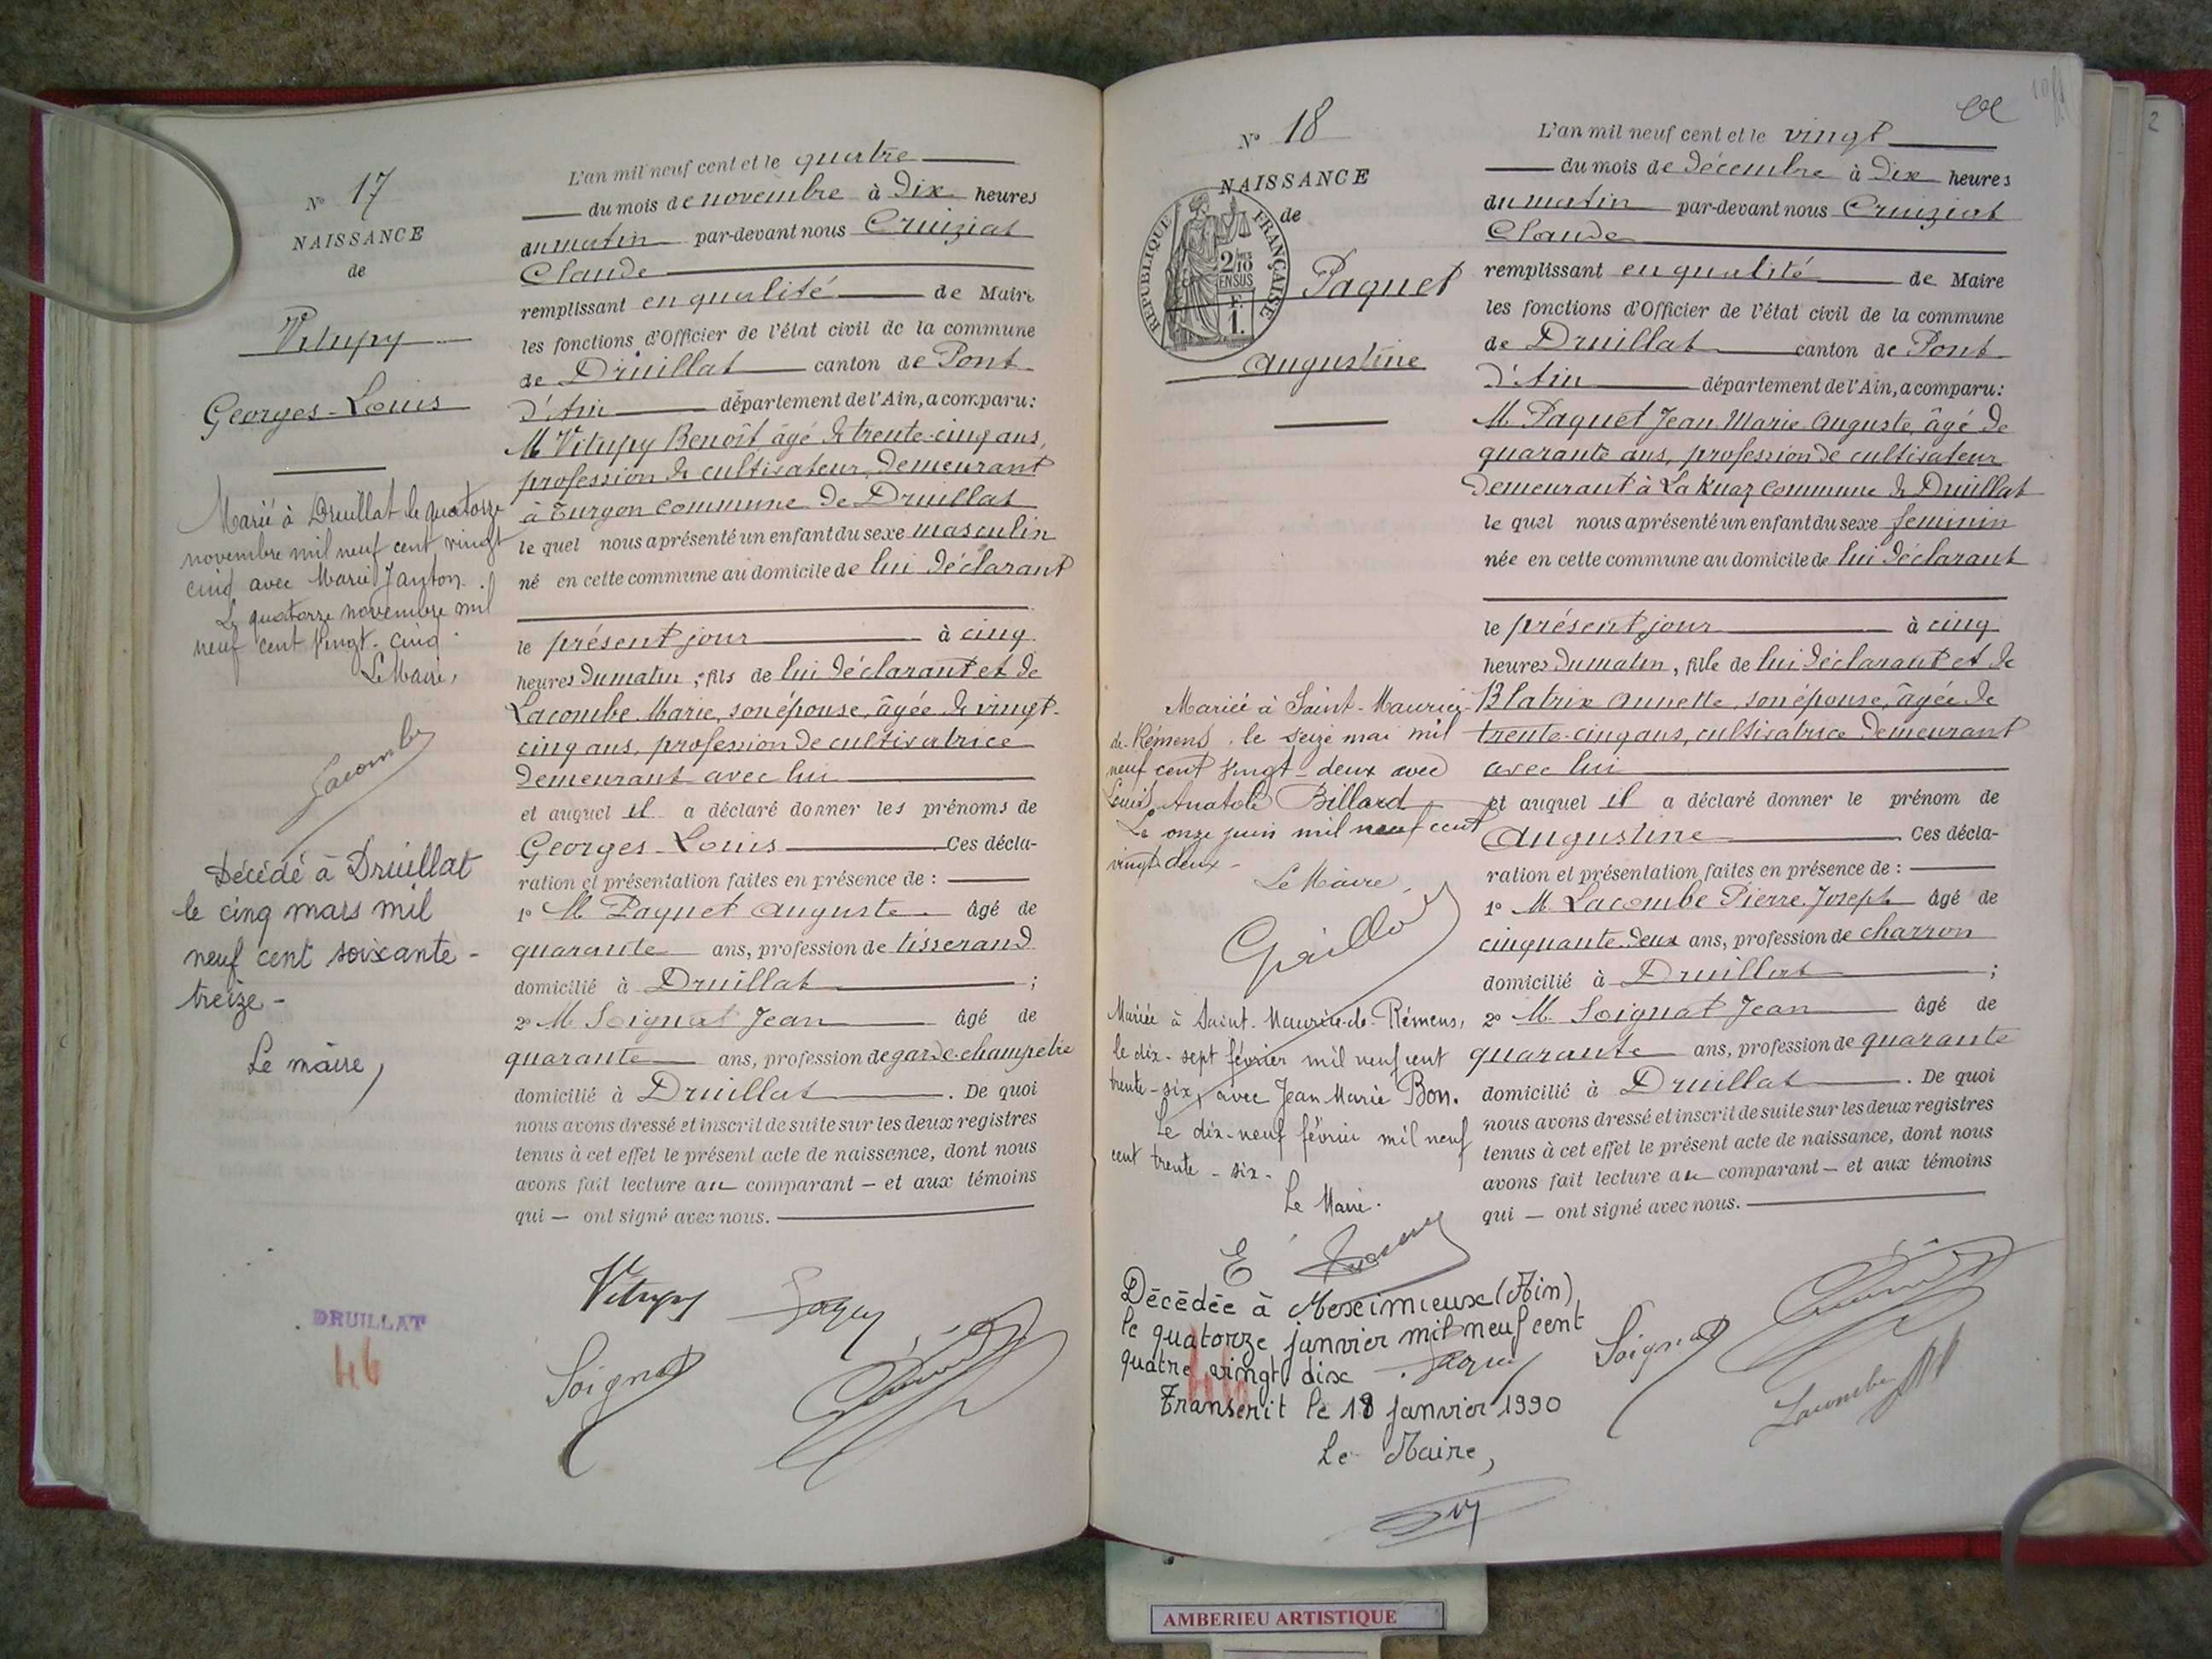 N° 17
NAISSANCE
de
Vitupy
Georges-Louis
Marié à Druillat le quatorze
novembre mil neuf cent vingt
cinq avec Marie Janton.
Le quatorze novembre mil
neuf cent vingt-cinq.
Le Maire,
Lacombe
Décédé à Druillat
le cinq mars mil
neuf cent soixante-
treize-
Le maire,
DRUILLAT
46
L'an mil neuf cent et le quatre
du mois de novembre à dix heures
du matin par-devant nous Cruiziat
Claude
remplissant en qualité de Maire
les fonctions d'Officier de l'état civil de la commune
de Druillat canton de Pont-
d'Ain département de l'Ain, a comparu:
M Vitupy Benoît, âgé de trente-cinq ans,
profession de cultivateur, demeurant
à Turgon commune de Druillat
le quel nous a présenté un enfant du sexe masculin
né en cette commune au domicile de lui déclarant
le présent jour à cinq
heures du matin, fils de lui déclarant et de
Lacombe Marie, son épouse, âgée de vingt-
cinq ans, profession de cultivatrice
demeurant avec lui
et auquel il a déclaré donner les prénoms de
Georges-Louis Ces décla-
ration et présentation faites en présence de :
1° M Paquet Auguste âgé de
quarante ans, profession de tisserand
domicilié à Druillat ;
2° M Soignat Jean âgé de
quarante ans, profession de garde-champetre
domicilié à Druillat . De quoi
nous avons dressé et inscrit de suite sur les deux registres
tenus à cet effet le présent acte de naissance, dont nous
avons fait lecture au comparant — et aux témoins
qui — ont signé avec nous.
Vitupy
Soignat
N° 18
NAISSANCE
de
REPUBLIQUE FRANÇAISE
2/10
EN SUS
F.
1.
Paquet
Augustine
Mariée à Saint-Maurice-
de-Rémens, le seize mai mil
neuf cent vingt-deux avec
Louis Anatole Billard
Le onze juin mil neuf cent
vingt-deux-
Le Maire,
Mariée à Saint-Maurice-de-Rémens,
le dix-sept février mil neuf cent
trente-six, avec Jean Marie Bon.
Le dix-neuf février mil neuf
cent trente-six-
Le Maire.
Décédée à Meximieux (Ain)
le quatorze janvier mil neuf cent
quatre vingt dix
Transcrit le 18 janvier 1990
Le Maire,
L'an mil neuf cent et le vingt
du mois de décembre à dix heures
du matin par-devant nous Cruiziat
Claude
remplissant en qualité de Maire
les fonctions d'Officier de l'état civil de la commune
de Druillat canton de Pont-
d'Ain département de l'Ain, a comparu:
M. Paquet Jean Marie Auguste, âgé de
quarante ans, profession de cultivateur
demeurant à La Ruaz commune de Druillat
le quel nous a présenté un enfant du sexe feminin
née en cette commune au domicile de lui déclarant
le présent jour à cinq
heures du matin, fille de lui déclarant et de
Blatrix Annette, son épouse, âgée de
trente-cinq ans, cultivatrice demeurant
avec lui
et auquel il a déclaré donner le prénom de
Augustine Ces décla-
ration et présentation faites en présence de :
1° M. Lacombe Pierre Joseph âgé de
cinquante-deux ans, profession de charron
domicilié à Druillat ;
2° M. Soignat Jean âgé de
quarante ans, profession de quarante
domicilié à Druillat . De quoi
nous avons dressé et inscrit de suite sur les deux registres
tenus à cet effet le présent acte de naissance, dont nous
avons fait lecture au comparant — et aux témoins
qui — ont signé avec nous.
Soignat
Lacombe
2
AMBERIEU ARTISTIQUE